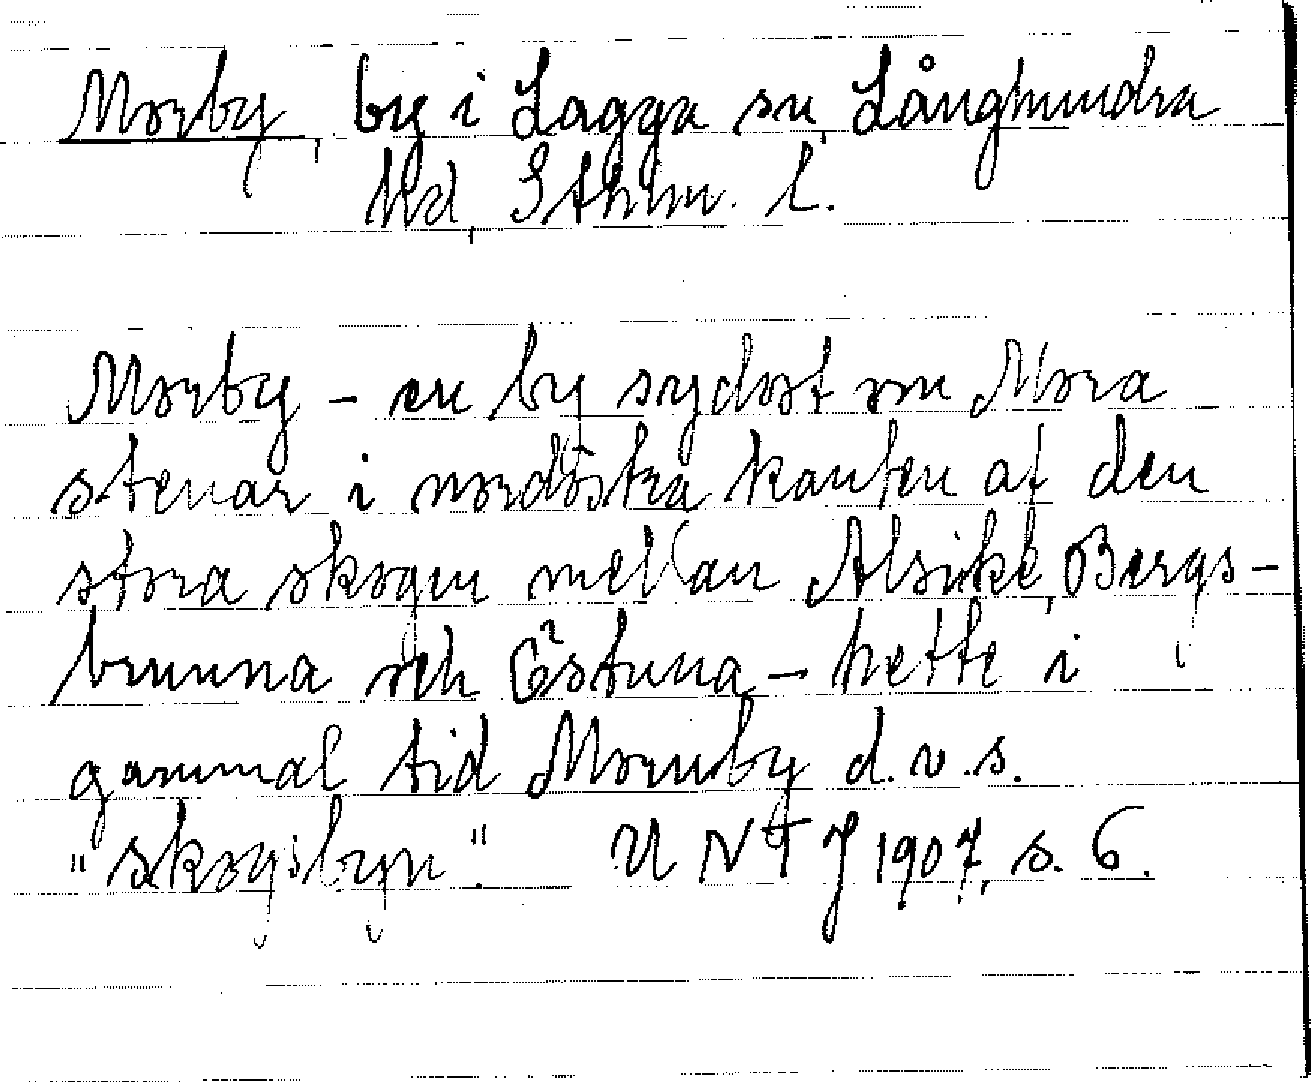 Morby, by i Lagga sn, Långhundra
hd, Sthlm. l.
Morby – en by sydost om Mora
stenar i nordöstra kanten af den
stora skogen mellan Alsike, Bergs-
brunna och Östuna – hette i
gammal tid Mornby d.v.s.
"skogsbyn". UNFT 1907, s. 6.